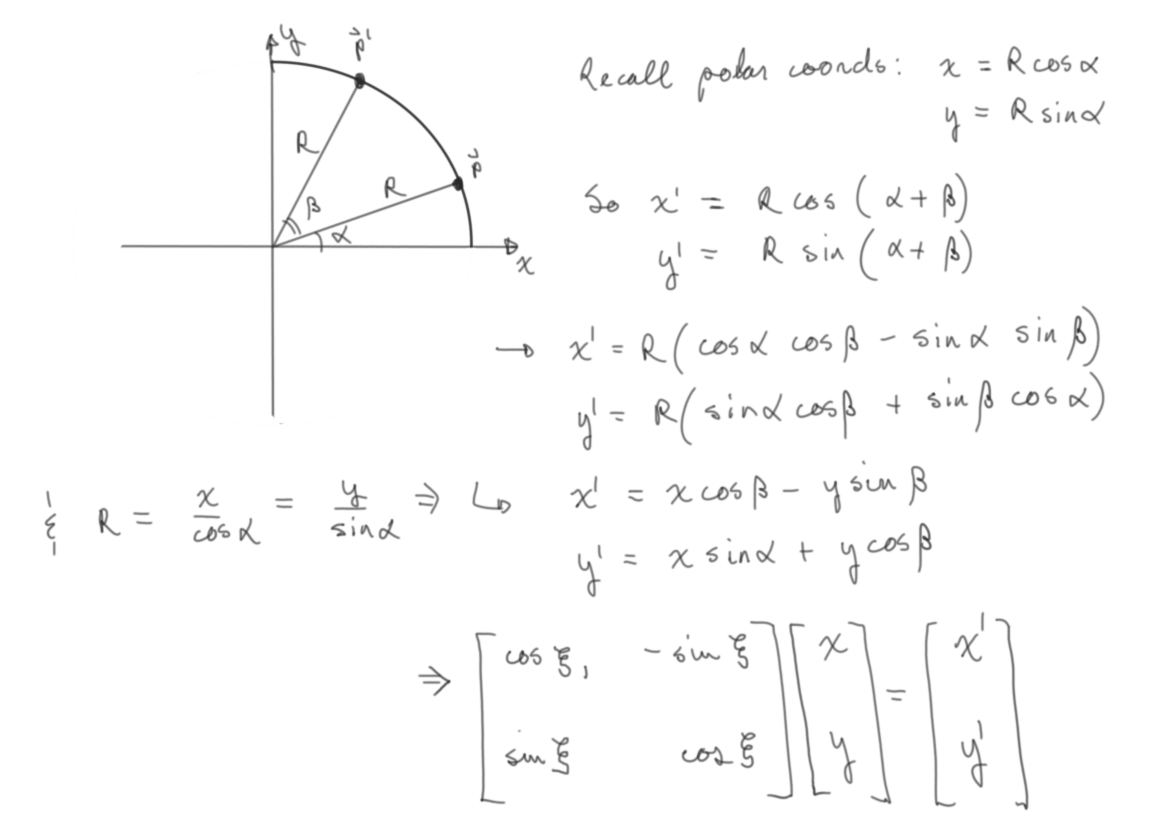 y
p⃗'
R
β
R
p⃗
α
x
Recall polar coords: x = R cos α
y = R sin α
So x' = R cos (α + β)
y' = R sin (α + β)
→ x' = R(cos α cos β - sin α sin β)
y' = R(sin α cos β + sin β cos α)
& R = x/cos α = y/sin α ⇒ ↳ x' = x cos β - y sin β
y' = x sin α + y cos β
⇒ [cos ξ, - sin ξ] [x] = [x']
[sin ξ cos ξ] [y] [y']